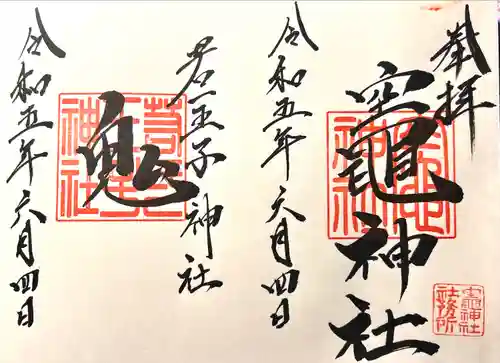 奉拝
竈神社
竈神社
社務所
令和五年六月四日
若王子神社
鬼
令和五年六月四日